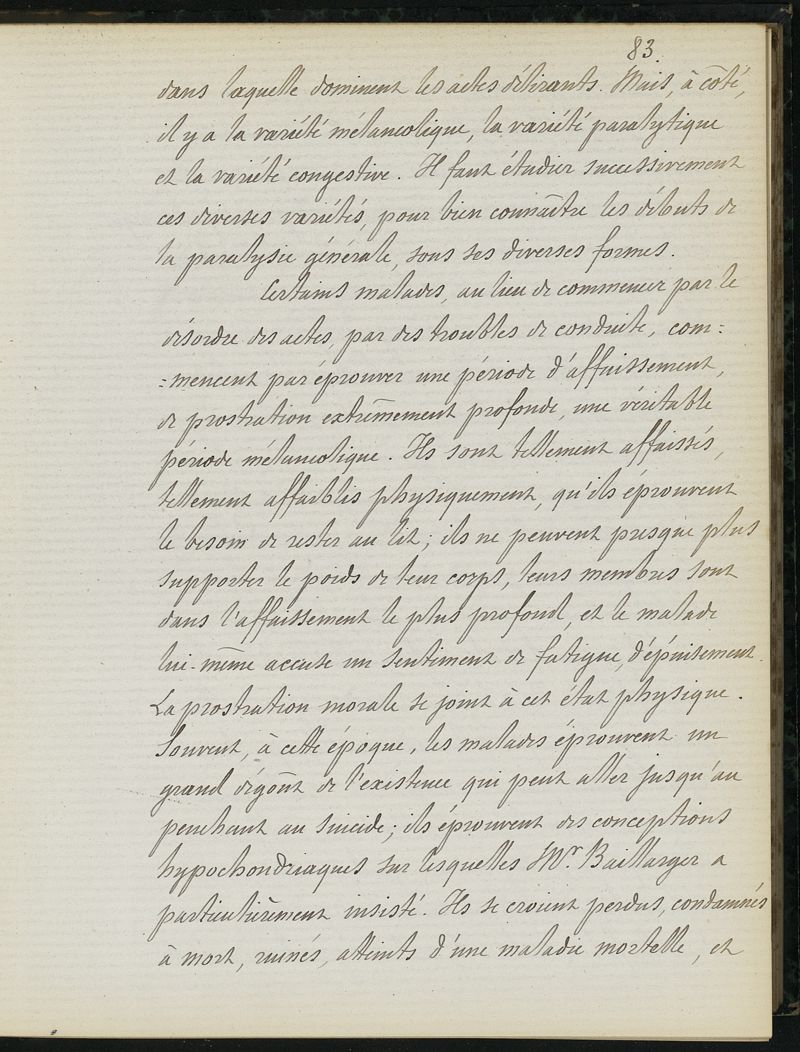 83.
dans laquelle dominent les actes délirants. Mais, à côté,
il y a la variété mélancolique, la variété paralytique
et la variété congestive. Il faut étudier successivement
ces diverses variétés, pour bien connaître les débuts de
la paralysie générale, sous ses diverses formes.
Certains malades, au lieu de commencer par le
désordre des actes, par des troubles de conduite, com=
=mencent par éprouver une période d'affaissement,
de prostration extrêmement profonde, une véritable
période mélancolique. Ils sont tellement affaissés,
tellement affaiblis physiquement, qu'ils éprouvent
le besoin de rester au lit; ils ne peuvent presque plus
supporter le poids de leur corps, leurs membres sont
dans l'affaissement le plus profond, et le malade
lui-même accuse un sentiment de fatigue, d'épuisement.
La prostration morale se joint à cet état physique.
Souvent, à cette époque, les malades éprouvent un
grand dégoût de l'existence qui peut aller jusqu'au
penchant au suicide; ils éprouvent des conceptions
hypochondriaques sur lesquelles Mr. Baillarger a
particulièrement insisté. Ils se croient perdus, condamnés
à mort, ruinés, atteints d'une maladie mortelle, et